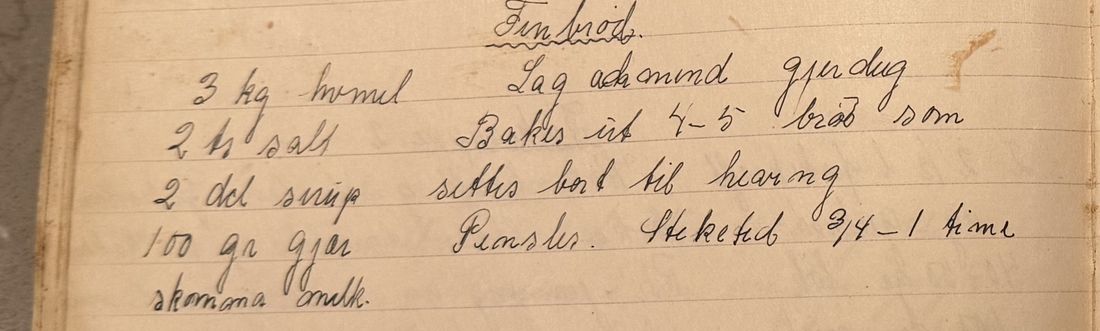 Finbrød.
3 kg hvmel
2 ts salt
2 del sirup
100 gr gjær
skomma melk.
Lag alm gjerdeig
Bakes ut 4-5 brød som
settes bort til hevning
Pensles. Steketid 3/4-1 time